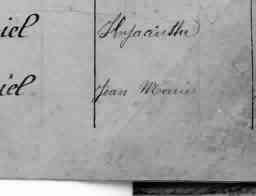 iel Hyacinthe
iel Jean Marie